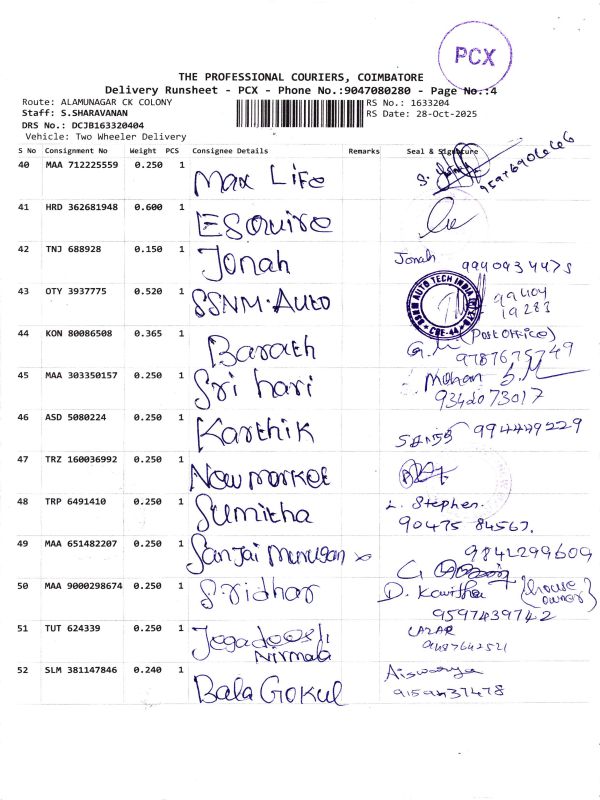 PCX
THE PROFESSIONAL COURIERS, COIMBATORE
Delivery Runsheet - PCX - Phone No.:9047080280 - Page No.:4
Route: ALAMUNAGAR CK COLONY
RS No.: 1633204
Staff: S.SHARAVANAN
RS Date: 28-Oct-2025
DRS No.: DCJB163320404
Vehicle: Two Wheeler Delivery
S No Consignment No Weight PCS Consignee Details Remarks Seal & Signature
40 MAA 712225559 0.250 1 Max Life
41 HRD 362681948 0.600 1 Esquire
42 TNJ 688928 0.150 1 Jonah Jonah 9940934475
43 OTY 3937775 0.520 1 SSNM. Auto 99404
19283
44 KON 80086508 0.365 1 Barath (Post office)
9787675749
45 MAA 303350157 0.250 1 Sri hari Mohan S.M
9342073017
46 ASD 5080224 0.250 1 Karthik 994449229
47 TRZ 160036992 0.250 1 New market
48 TRP 6491410 0.250 1 Sumitha L. Stephen.
90475 84567.
49 MAA 651482207 0.250 1 Sanjai Murugan x 9842299609
50 MAA 9000298674 0.250 1 Sridhar D. Kavitha (house owner)
9597439742
51 TUT 624339 0.250 1 Jegadeesh LAZAR
Nirmala 9487642521
52 SLM 381147846 0.240 1 Bala Gokul Aiswarya
9159437478